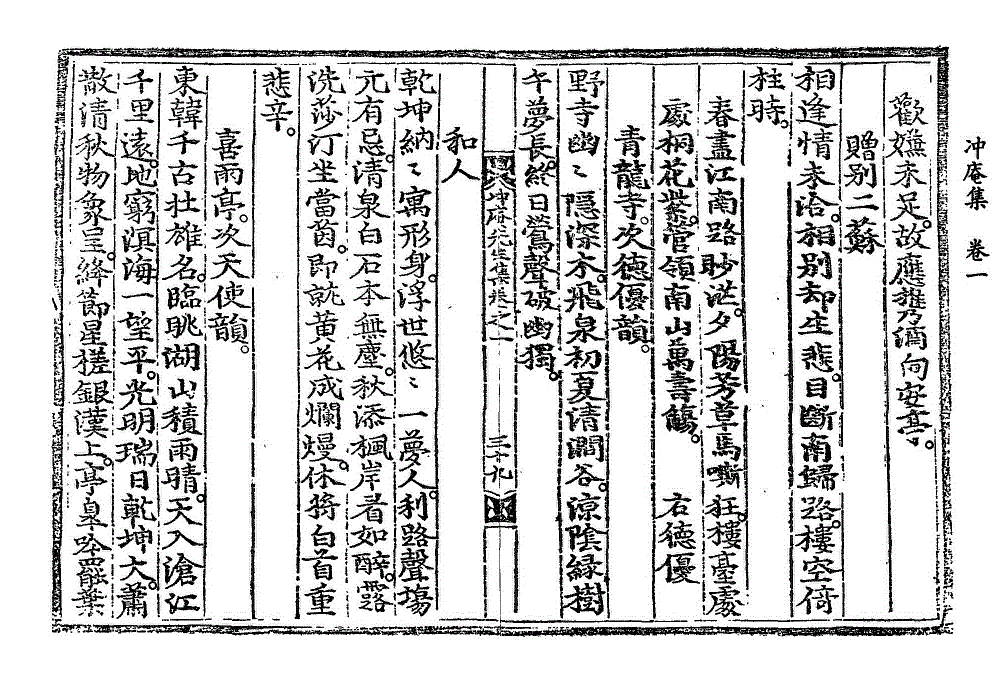 冲庵集　卷一
歡嫌未足。故應携乃酒向安亭。
贈别二蘇
相逢情未洽。相别却生悲。目断南歸路。樓空倚
柱時。
春盡江南路眇茫。夕陽芳草馬嘶狂。樓臺處
處桐花紫。管領南山萬壽觴。　右德優
青龍寺。次德優韻。
野寺幽〻隱深木。飛泉初夏清㵎谷。凉陰緑樹
午夢長。終日鶯聲破幽獨。
冲庵先生集卷之一　三十九
和人
乾坤納〻寓形身。浮世悠〻一夢人。利路聲塲
元有忌。清泉白石本無塵。秋添楓岸看如醉。露
洗莎汀坐當茵。即就黄花成爛熳。休將白首重
悲辛。
喜雨亭。次天使韻。
東韓千古壮雄名。臨眺湖山積雨晴。天入滄江
千里遠。地窮溟海一望平。光明瑞日乾坤大。蕭
散清秋物象呈。絳節星槎銀漢上。亭臯吟罷葉